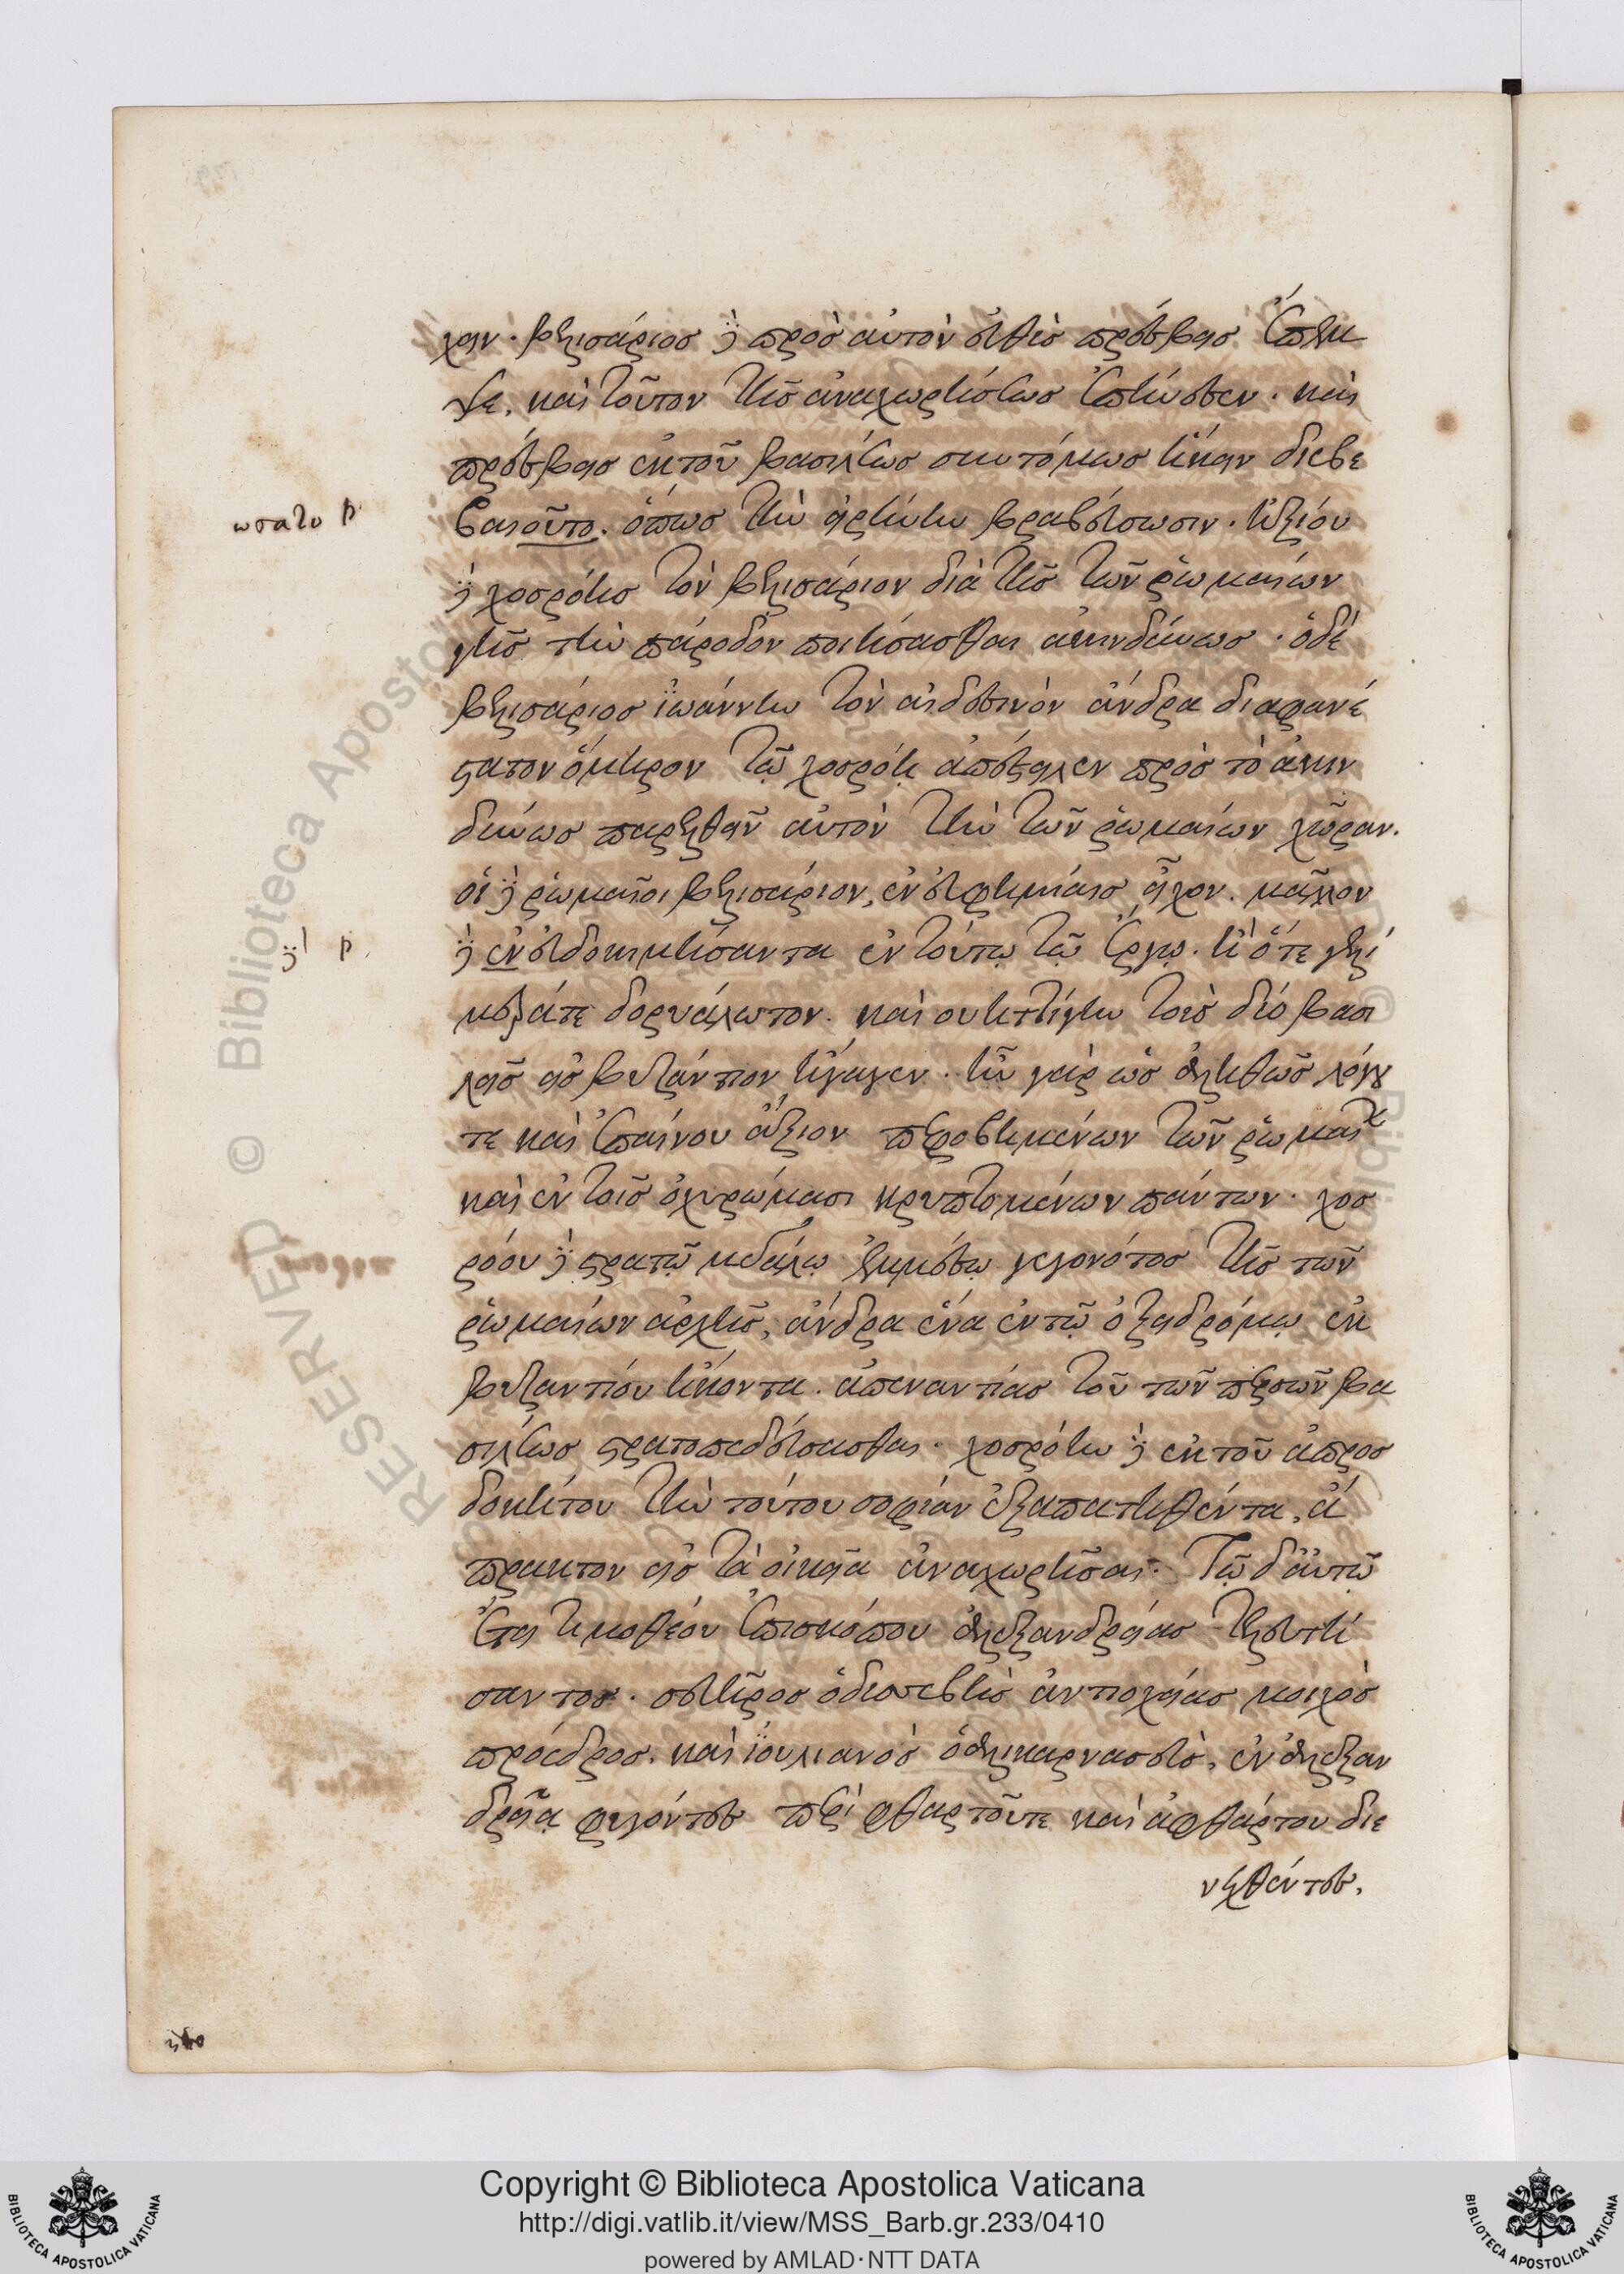 χειν. βελισάριος δὲ πρὸς αὐτὸν εὐθὺς πρέσβεις ἔπεμ
ψε, καὶ τοῦτον τῆς ἀναχωρήσεως ἔπαυσεν. καὶ
πρέσβεις ἐκ τοῦ βασιλέως συντόμως ἥκειν διεβε
βαιοῦτο. ὅπως τὴν εἰρήνην βραβεύσωσιν. ἠξίου
δὲ χοσρόης τὸν βελισάριον διὰ τῆς τῶν ῥωμαίων
γῆς τὴν πάροδον ποιήσασθαι ἀκινδύνως. ὁ δὲ
βελισάριος ἰωάννην τὸν αἰδεσινὸν ἄνδρα διαφανέ
στατον ὅμηρον τῷ χοσρόῃ ἀπέστειλεν πρὸς τὸ ἀκιν
δύνως παρελθεῖν αὐτὸν τὴν τῶν ῥωμαίων χώραν.
οἱ δὲ ῥωμαῖοι βελισάριον, ἐν εὐφημίαις εἶχον. μᾶλλον
δὲ ἐνευδοκιμήσαντα ἐν τούτῳ τῷ ἔργῳ. ἢ ὅτε γελί
μερά τε δορυάλωτον. καὶ οὐιττίγην τοὺς δύο βασι
λεῖς εἰς βυζάντιον ἤγαγεν. ἦν γὰρ ὡς ἀληθῶς λόγου
τε καὶ ἐπαίνου ἄξιον πεφοβημένων τῶν ῥωμαίων
καὶ ἐν τοῖς ὀχυρώμασι κρυπτομένων πάντων. χοσ
ρόου δὲ στρατῷ μεγάλῳ ἐν μέσῳ γεγονότος τῆς τῶν
ῥωμαίων ἀρχῆς, ἄνδρα ἕνα ἐν τῷ ὀξεῖ δρόμῳ ἐκ
βυζαντίου ἥκοντα. ἀπεναντίας τοῦ τῶν περσῶν βα
σιλέως στρατοπεδεύσασθαι. χοσρόην δὲ ἐκ τοῦ ἀπροσ
δοκήτου τὴν τούτου σοφίαν ἐξαπατηθέντα, ἄ
πρακτον εἰς τὰ οἰκεῖα ἀναχωρῆσαι. Τῷ δ' αὐτῷ
ἔτει τιμοθέου ἐπισκόπου ἀλεξανδρείας τελευτή
σαντος. σευῆρος ὁ δυσσεβὴς ἀντιοχείας μοιχὸς
πρόεδρος. καὶ ἰουλιανὸς ὁ ἁλικαρνασεὺς, ἐν ἀλεξαν
δρείᾳ φυγόντες περὶ φθαρτοῦ τε καὶ ἀφθάρτου διε
νεχθέντες,
ωσατο p
δὲ p.
Copyright © Biblioteca Apostolica Vaticana
http://digi.vatlib.it/view/MSS_Barb.gr.233/0410
powered by AMLAD·NTT DATA